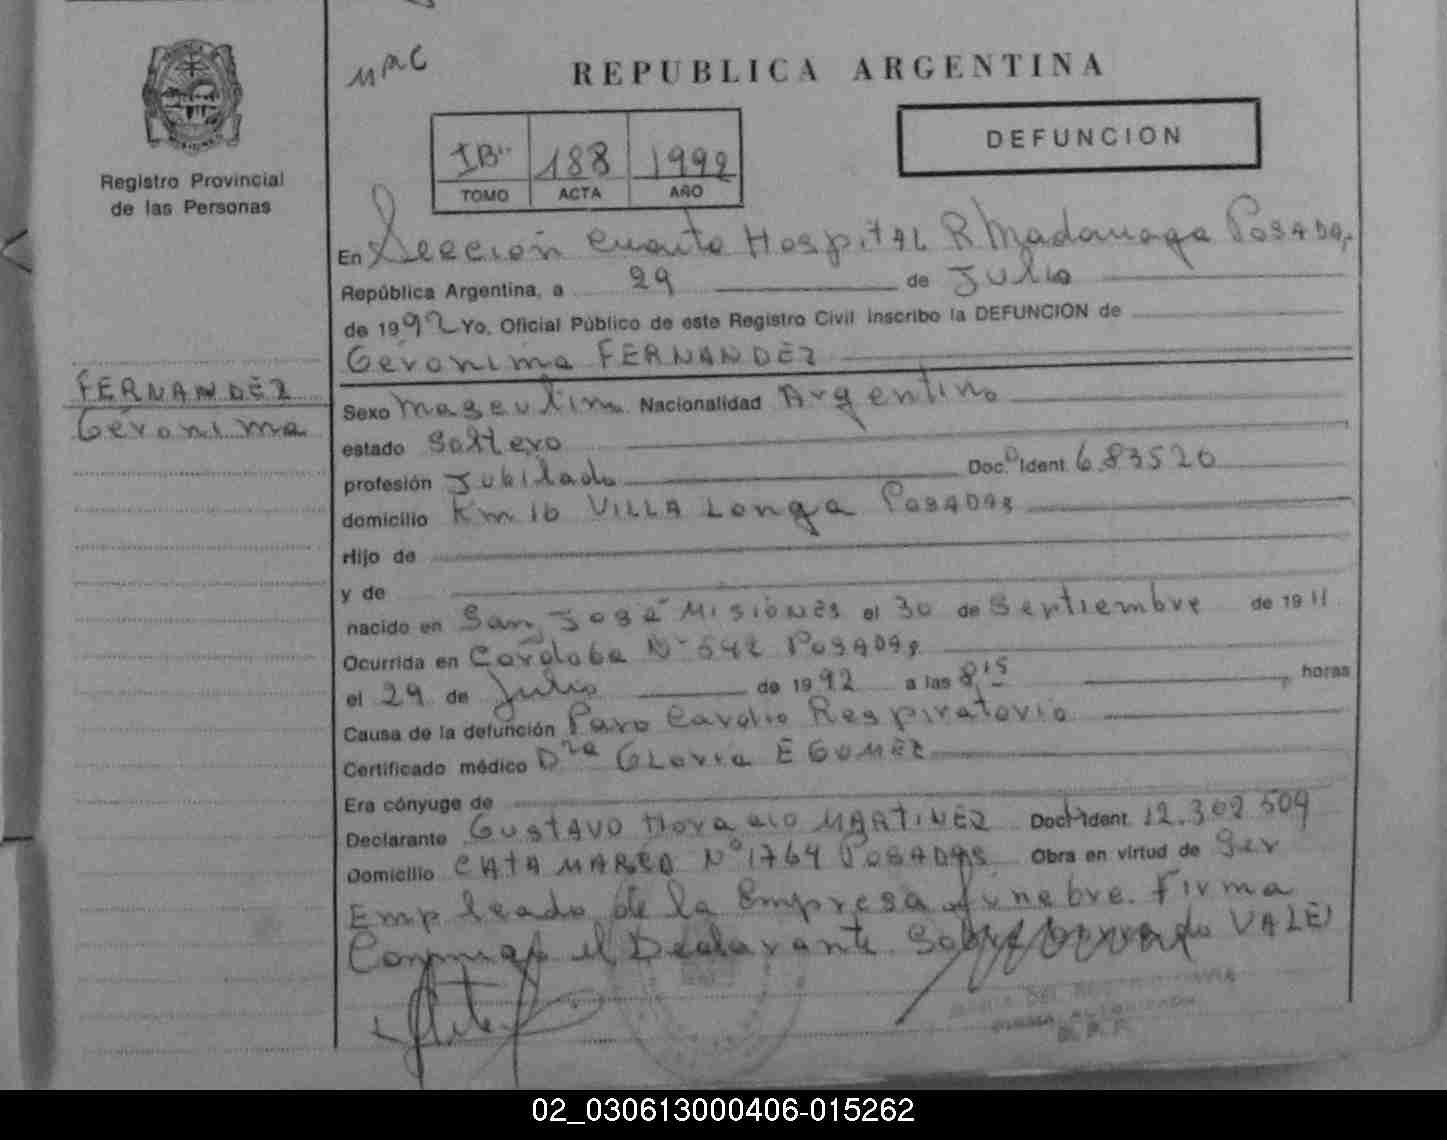 MAC
REPUBLICA ARGENTINA
Registro Provincial
de las Personas
IBis 188 1992
TOMO ACTA AÑO
DEFUNCION
En Sección Cuarta Hospital R Madariaga POSADAS
República Argentina, a 29 de Julio
de 1992 Yo, Oficial Público de este Registro Civil inscribo la DEFUNCION de
Géronima FERNANDEZ
FERNANDEZ
Géronima
Sexo Masculino Nacionalidad Argentino
estado Soltero
profesión Jubilado Doc. Ident. 683520
domicilio Km 16 VILLA Longa POSADAS
Hijo de
y de
nacido en San José MISIONES el 30 de Septiembre de 1911
Ocurrida en Córdoba Nº 542 POSADAS
el 29 de Julio de 1992 a las 8,15 horas
Causa de la defunción Paro Cardio Respiratorio
Certificado médico Dra GLoria E GOMEZ
Era cónyuge de
Declarante GUSTAVO Horacio MARTINEZ Doc. Ident. 12.302.509
Domicilio CATAMARCA Nº 1764 POSADAS Obra en virtud de Ser
Empleado de la Empresa fúnebre. Firma
Conmigo el Declarante. VALE
02_030613000406-015262